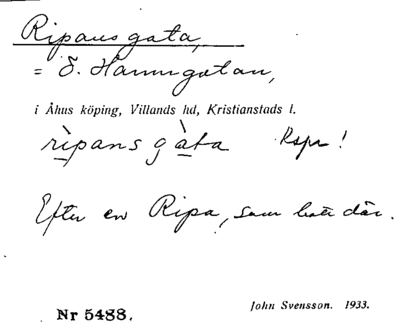 Ripans gata,
= Ö. Hamngatan,
i Åhus köping, Villands hd, Kristianstads l.
rìpans gàta Rspr!
Efter en Ripa, som bott där.
John Svensson. 1933.
Nr 5488.